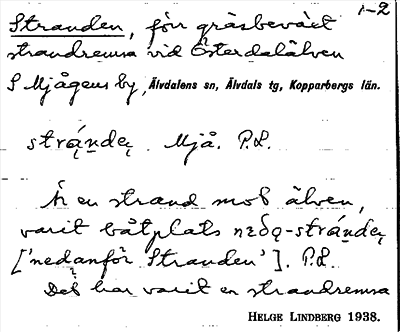 1-2
Stranden, förr gräsbeväxt
strandremsa vid Österdalälven
S Mjågens by, Älvdalens sn, Älvdals tg, Kopparbergs län.
strą́ndęꞏ Mjå. P.L.
Är en strand mot älven,
varit båtplats nęðǫ-strą́ndę
['nedanför Stranden']. P.L.
Det har varit en strandremsa
HELGE LINDBERG 1938.